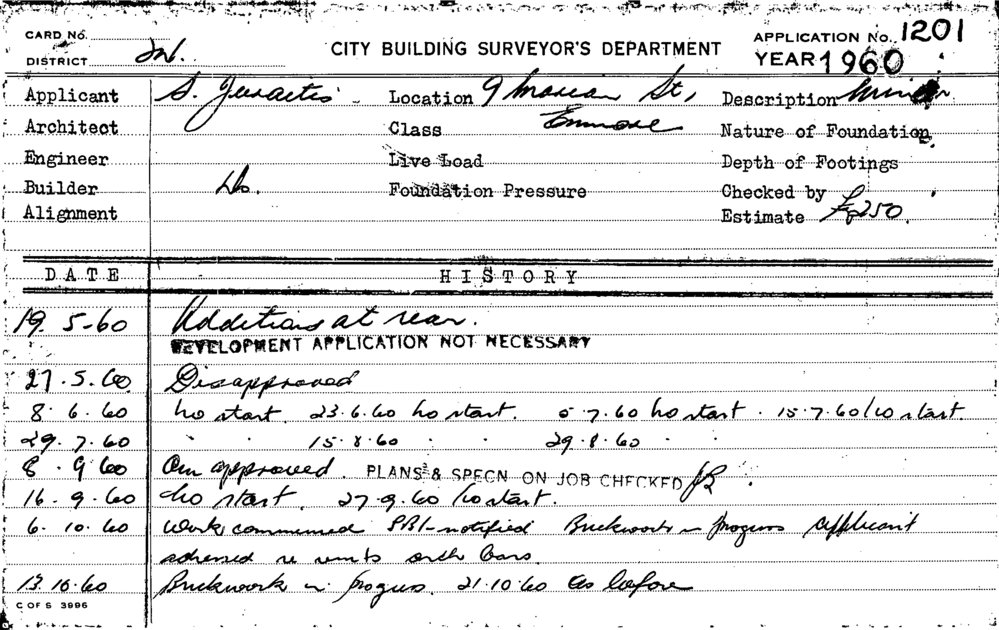 CARD No.
DISTRICT
CITY BUILDING SURVEYOR'S DEPARTMENT
APPLICATION No. 1201
YEAR 1960
Applicant S. Location 9 Marian St, Description Minor
Architect Class Enmore Nature of Foundation
Engineer Live Load Depth of Footings
Builder Do. Foundation Pressure Checked by
Alignment Estimate £250.
DATE HISTORY
19. 5-60 Additions at rear.
DEVELOPMENT APPLICATION NOT NECESSARY
27.5.60 Disapproved
8.6.60 No start. 23.6.60 No start. 5.7.60 No start. 15.7.60 No start
29.7.60 " " 15.8.60 " " 29.8.60 " "
8.9.60 approved. PLANS & SPECN ON JOB CHECKED
16.9.60 No start. 27.9.60 No start.
6.10.60 Work commenced notified Brickwork in progress applicant
advised re vents bars.
13.10.60 Brickwork in progress. 21.10.60 As before
C OF S 3996